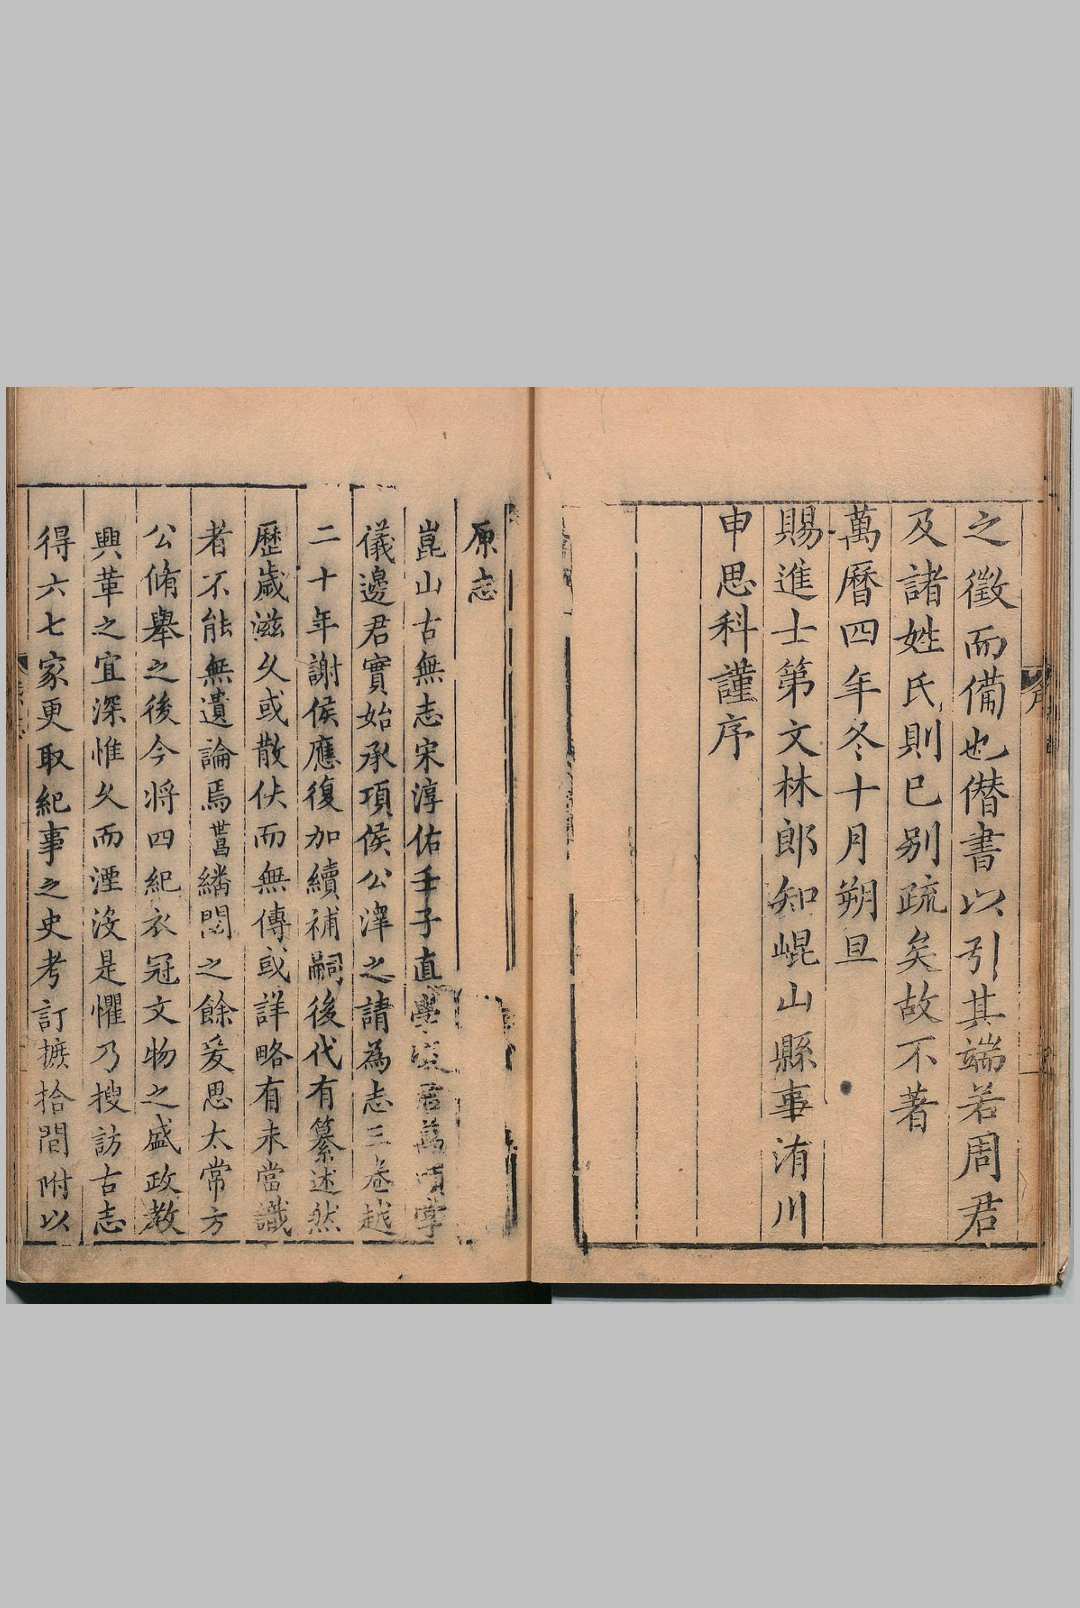 之徵而備也僣書以引其端若周君
及諸姓氏則已别疏矣故不著
萬曆四年冬十月朔旦
賜進士第文林郎知崐山縣事洧川
申思科謹序
序
原志
崑山古無志宋淳佑壬子直學
儀邊君實始承項侯公澤之請為志三卷越
二十年謝侯應復加續補嗣後代有纂述然
歷歲滋久或散佚而無傳或詳略有未當識
者不能無遺論焉甞繙閱之餘爰思太常方
公脩舉之後今将四紀衣冠文物之盛政教
興革之宜深惟久而湮没是懼乃搜訪古志
得六七家更取紀事之史考訂摭拾間附以